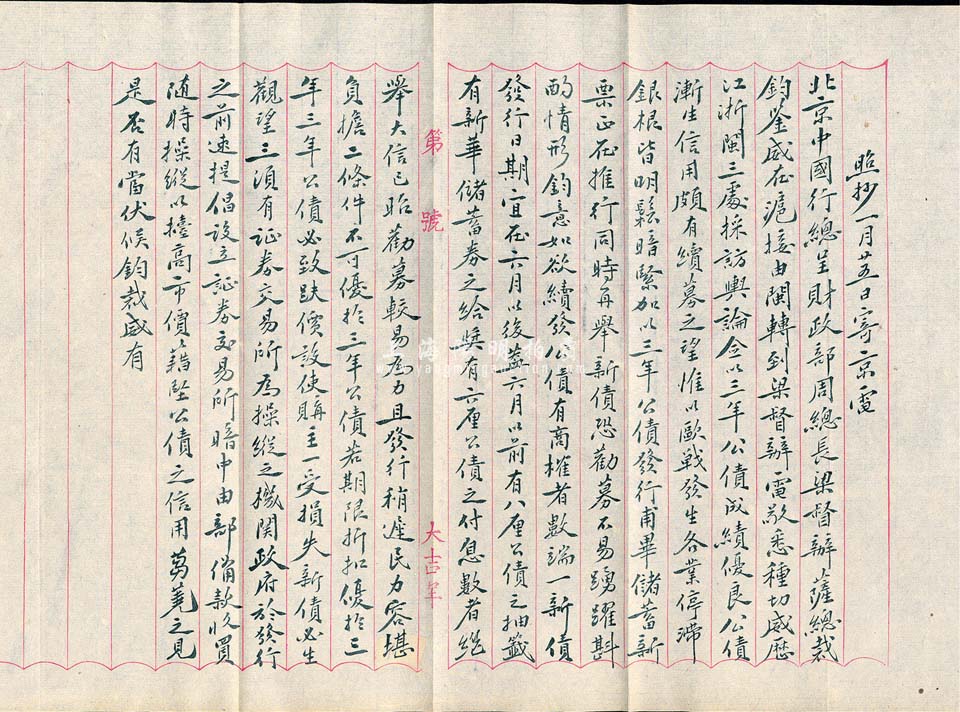 照抄一月廿五日寄京電
北京中國行總呈財政部周總長梁督辦薩總裁
鈞鉴咸在滬接由閩轉到梁督辦電敬悉種切咸歷
江浙閩三處採訪輿論念以三年公債成績優良公債
漸生信用頗有續募之望惟以歐戰發生各業停滯
銀根皆明鬆暗緊加以三年公債發行甫畢儲蓄新
票正在推行同時再舉新債恐勸募不易踴躍斟
酌情形鈞意如欲續發公債有商榷者數端一新債
發行日期宜在六月以後蓋六月以前有八厘公債之抽籤
有新華儲蓄券之給奬有六厘公債之付息數者經
第 號
大吉羊
舉大信已昭勸募較易為力且發行稍遲民力容堪
負擔二條件不可優於三年公債若期限折扣優於三
年三年公債必致跌價設使購主一受損失新債必生
觀望三須有証券交易所為操縱之機関政府於發行
之前速提倡設立証券交易所暗中由部備款收買
隨時操縱以擡高市價藉堅公債之信用芻蕘之見
是否有當伏候鈞裁咸有